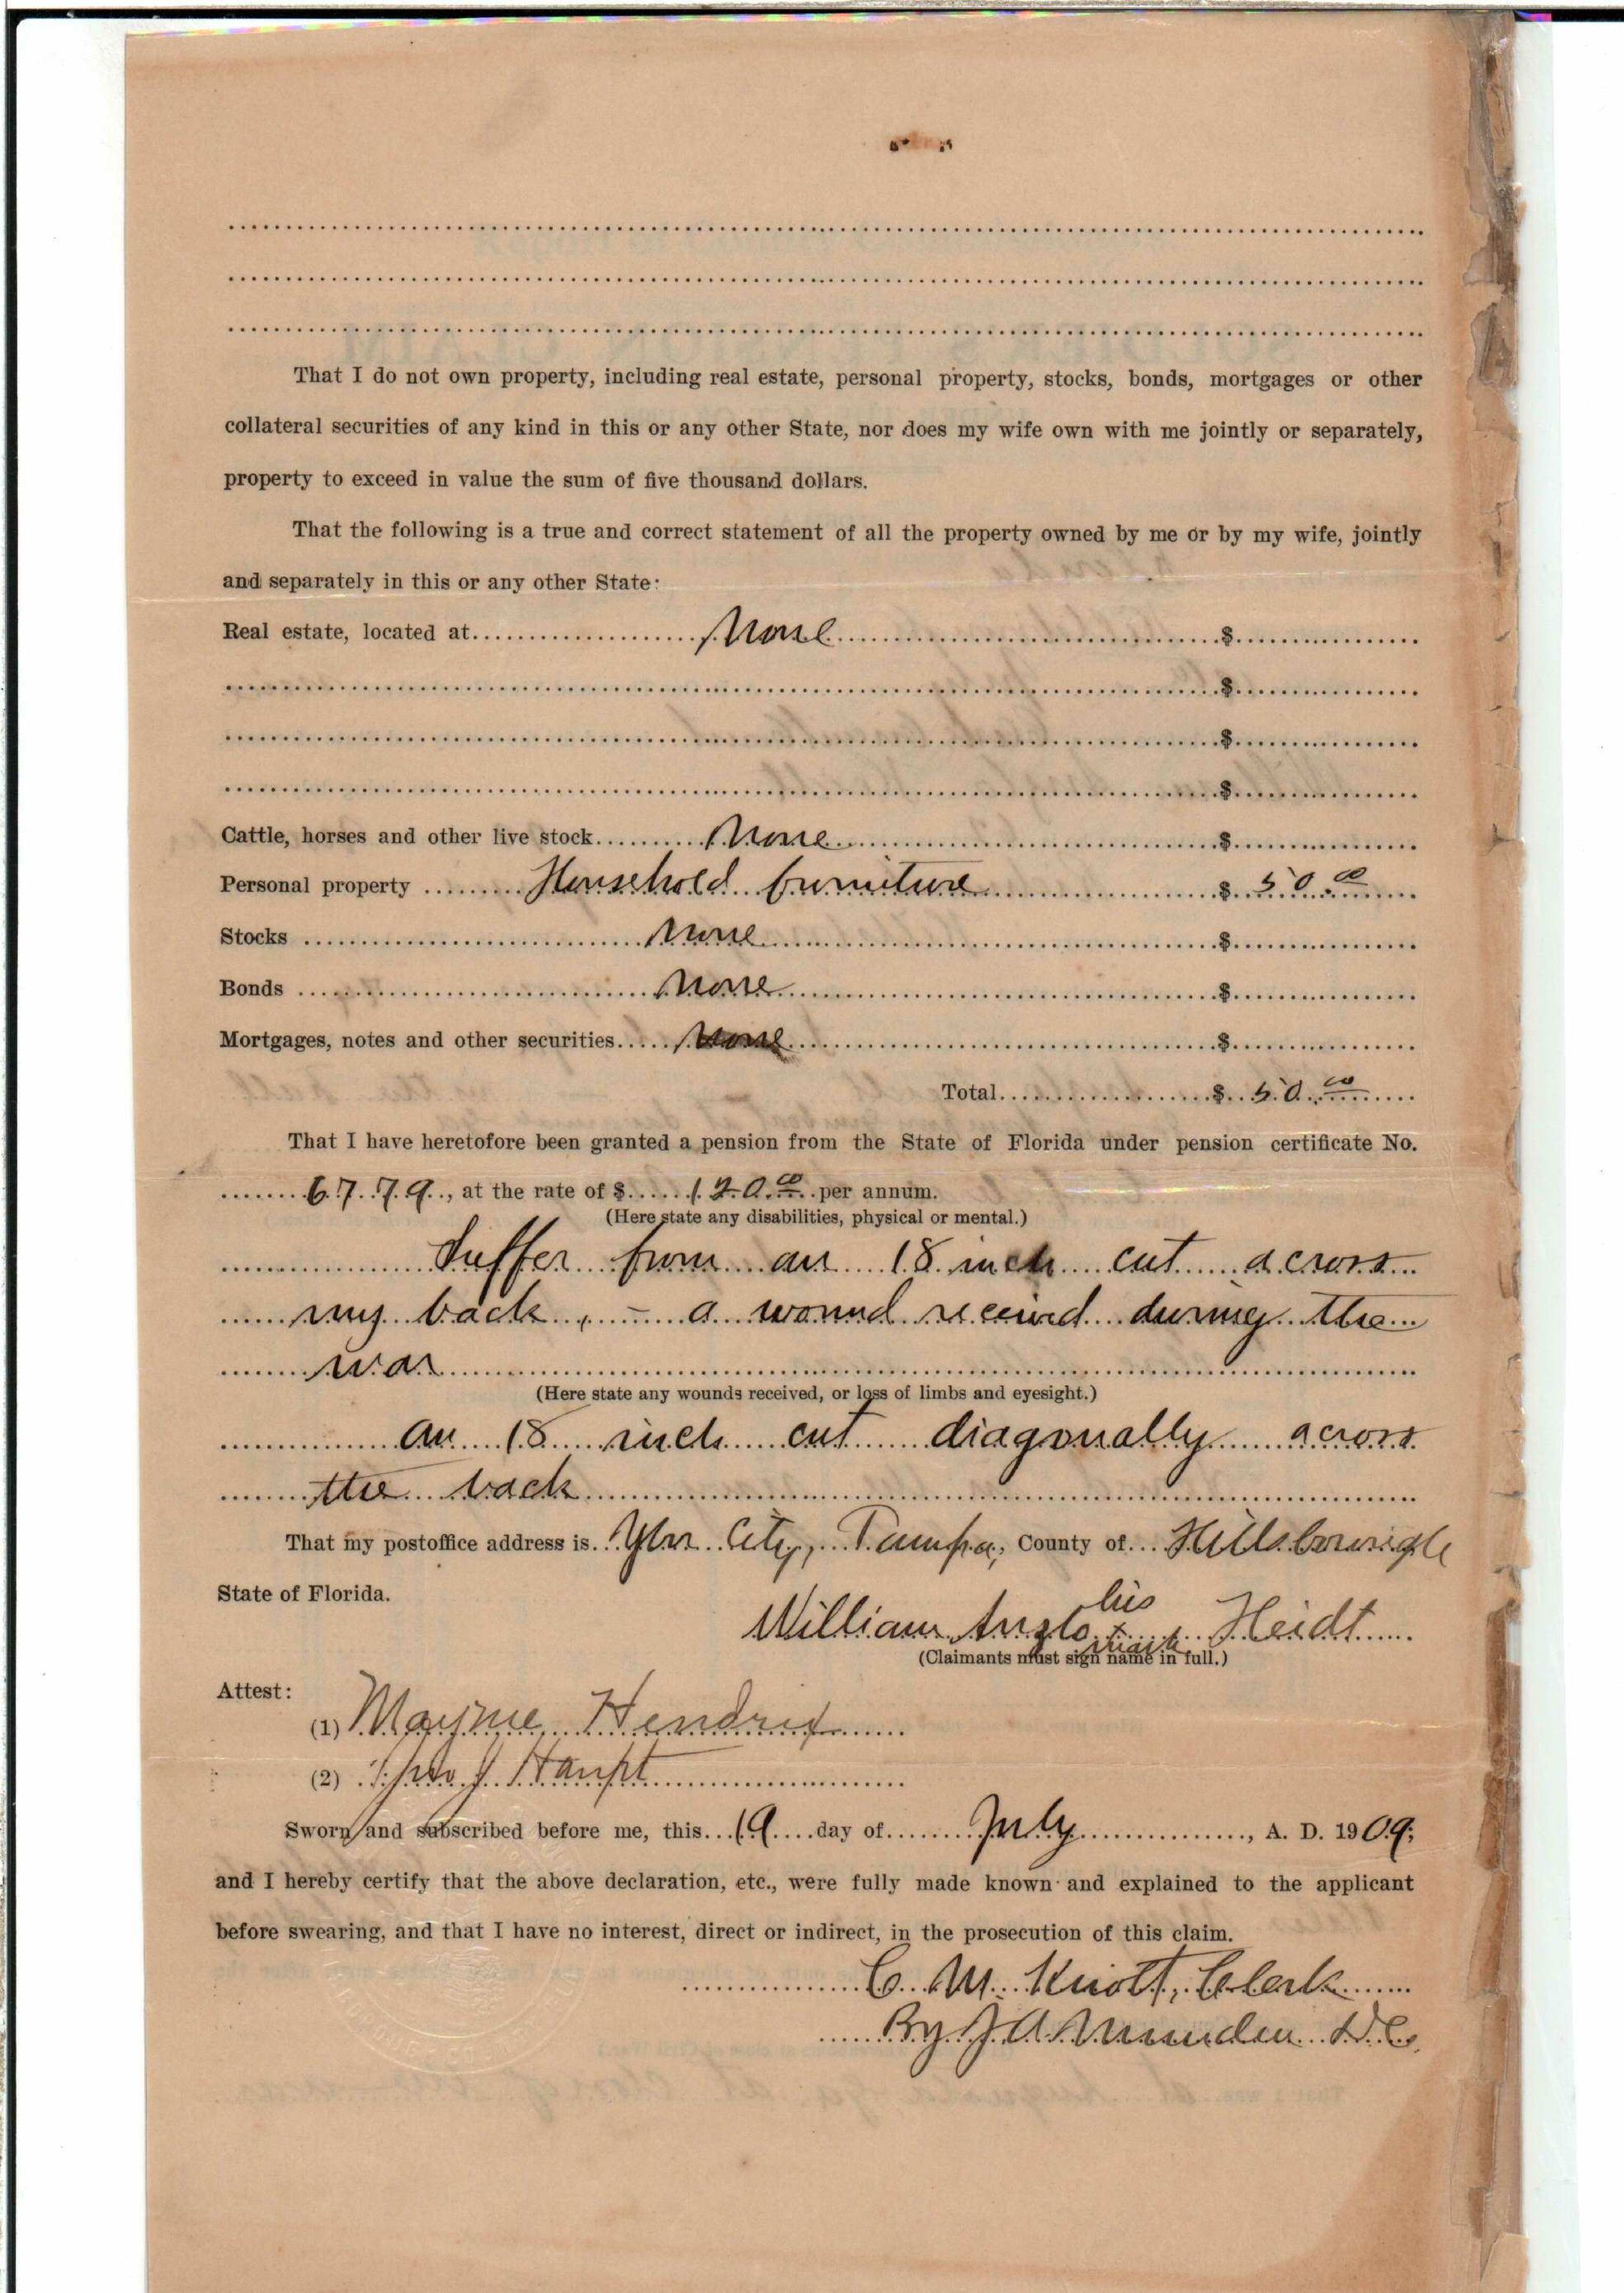 That I do not own property, including real estate, personal property, stocks, bonds, mortgages or other
collateral securities of any kind in this or any other State, nor does my wife own with me jointly or separately,
property to exceed in value the sum of five thousand dollars.
That the following is a true and correct statement of all the property owned by me or by my wife, jointly
and separately in this or any other State:
Real estate, located at None $
$
$
$
Cattle, horses and other live stock None $
Personal property Household furniture $ 50.00
Stocks None $
Bonds None $
Mortgages, notes and other securities None $
Total $ 50.00
That I have heretofore been granted a pension from the State of Florida under pension certificate No.
6779, at the rate of $ 120.00 per annum.
(Here state any disabilities, physical or mental.)
Suffer from an 18 inch cut across
my back, - a wound received during the
war
(Here state any wounds received, or loss of limbs and eyesight.)
an 18 inch cut diagonally across
the back
That my postoffice address is Ybor City, Tampa, County of Hillsborough
State of Florida.
his
William Anglo x Heidt
mark
(Claimants must sign name in full.)
Attest:
(1) Mayme Hendrix
(2) Jno J Haupt
Sworn and subscribed before me, this 19 day of July, A. D. 1909;
and I hereby certify that the above declaration, etc., were fully made known and explained to the applicant
before swearing, and that I have no interest, direct or indirect, in the prosecution of this claim.
C. M. Knott, Clerk
By J A Munden D.C.